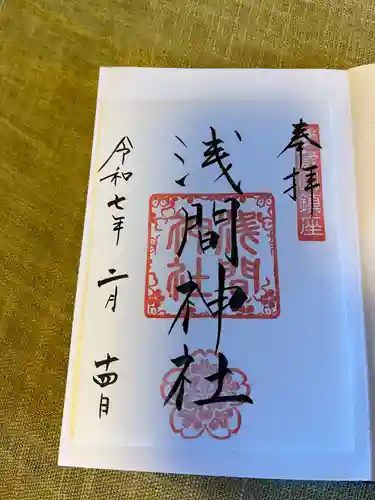 奉拝
鎮座
浅間神社
浅間
神社
令和七年 二月 十四日